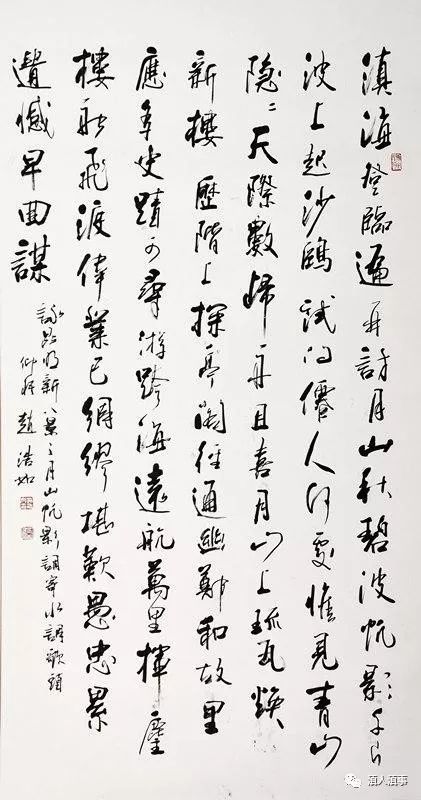 滇海登臨遍再訪月山秋碧波帆影千
波上起沙鷗試問僊人何處惟見青山
隱〻天際數歸舟且喜月山上琉瓦
新樓歷階上探亭閣徑通幽鄭和故里
應多史蹟可尋游跨海遠航萬里揮麾
樓船飛渡偉業已綢繆堪歎愚忠累
遺憾早回謀
詠昆明新八景之月山帆影調寄水調歌頭
趙浩如
酒人酒事